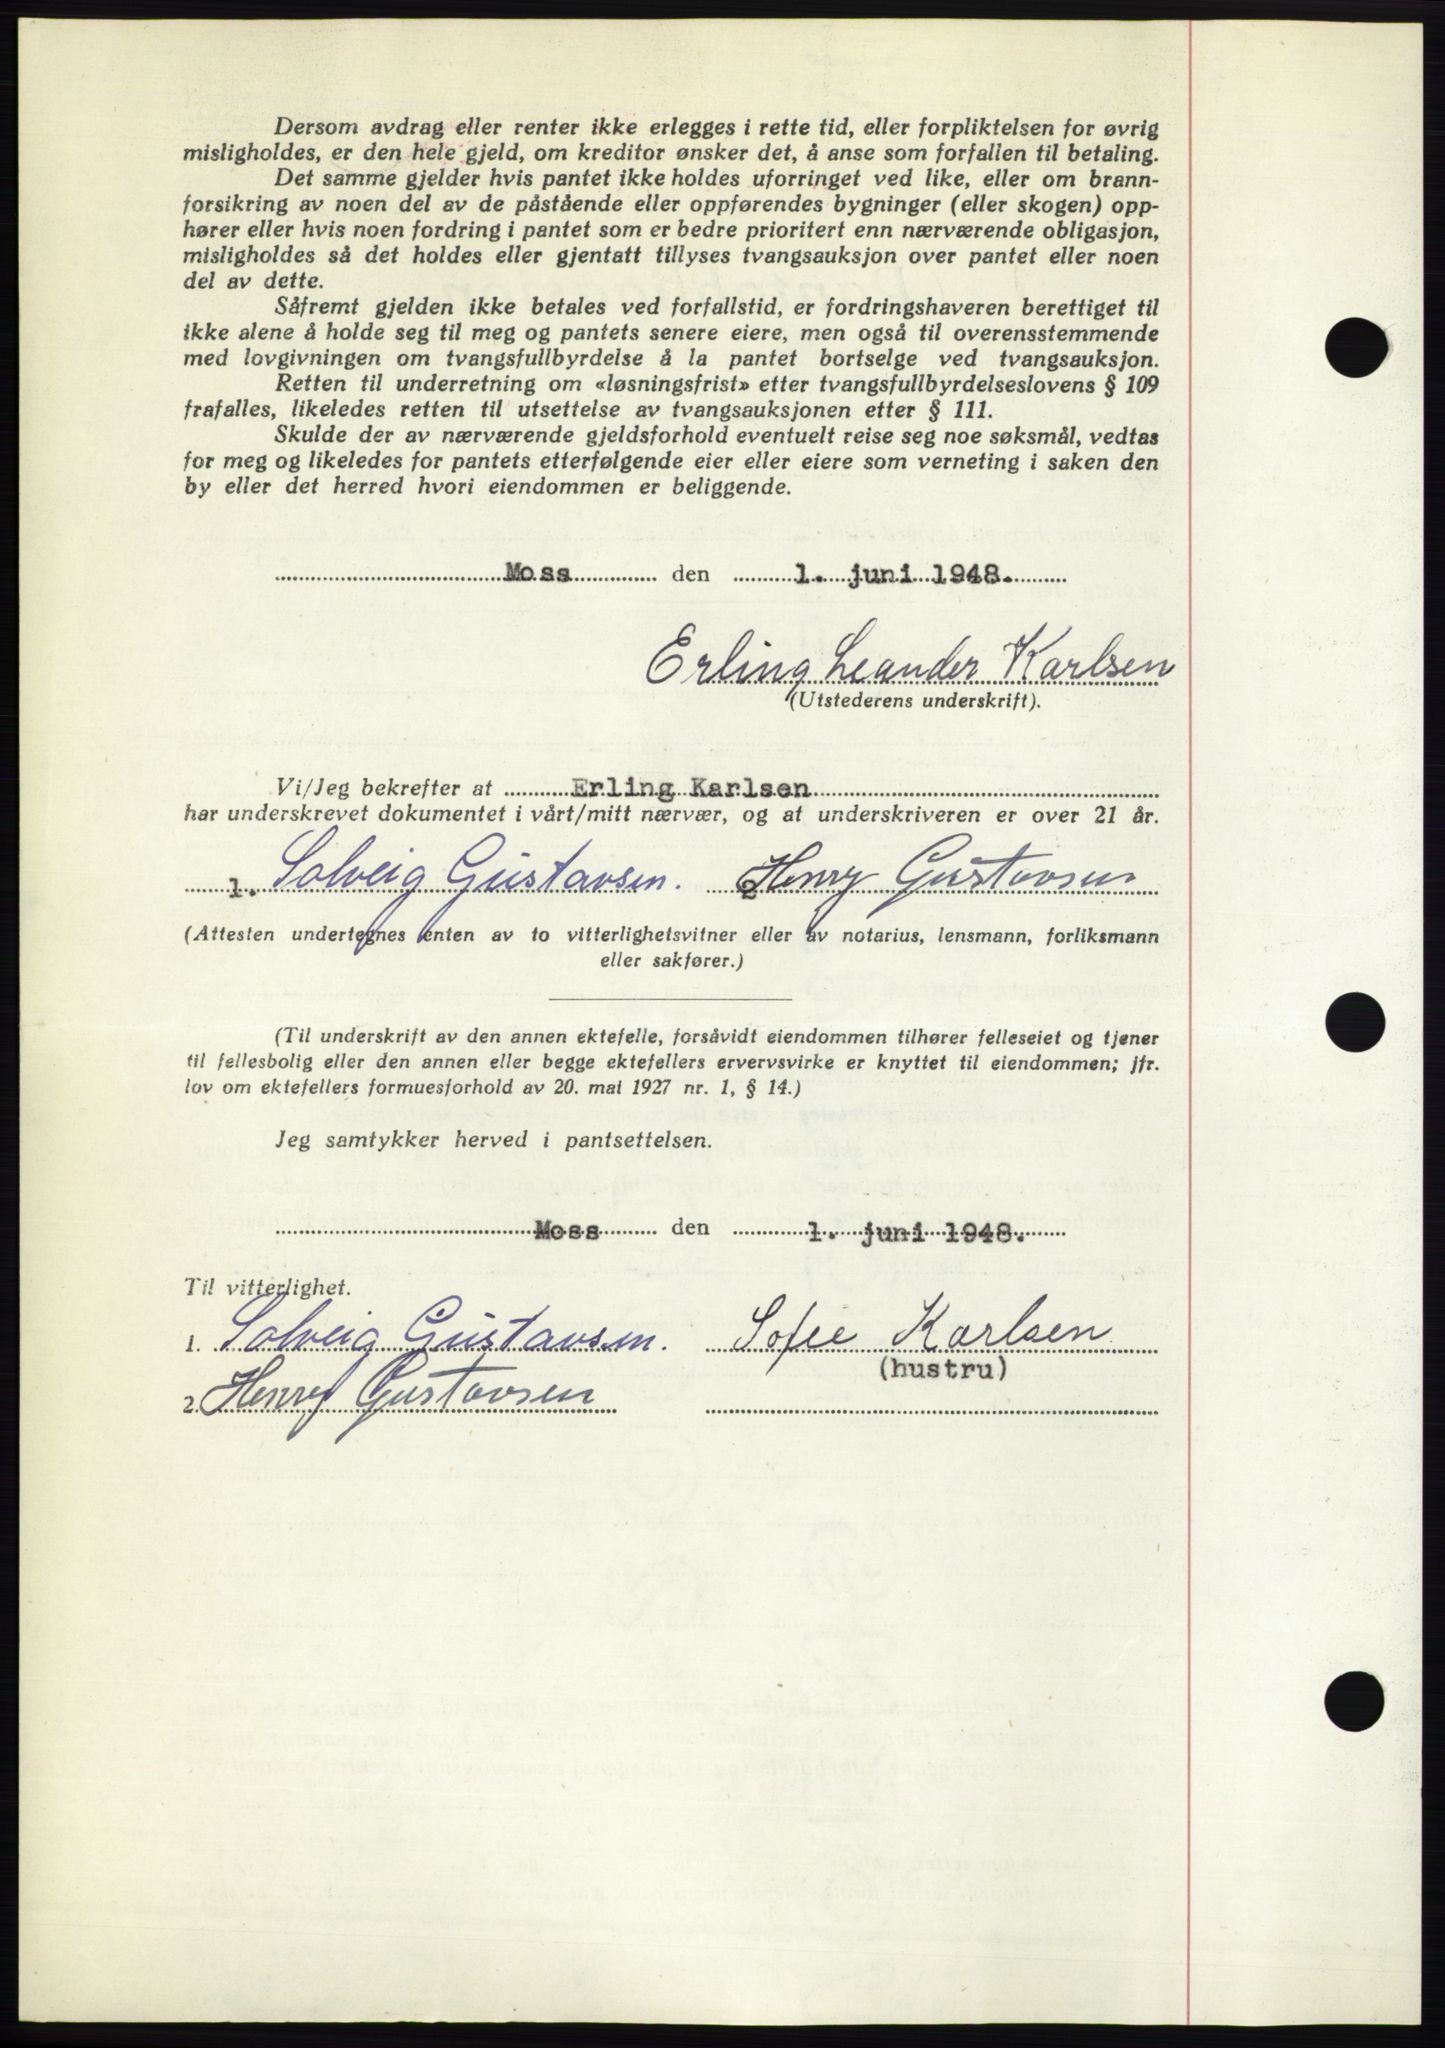 Dersom avdrag eller renter ikke erlegges i rette tid, eller forpliktelsen for øvrig
misligholdes, er den hele gjeld, om kreditor ønsker det, å anse som forfallen til betaling.
Det samme gjelder hvis pantet ikke holdes uforringet ved like, eller om brann-
forsikring av noen del av de påstående eller oppførendes bygninger (eller skogen) opp-
hører eller hvis noen fordring i pantet som er bedre prioritert enn nærværende obligasjon,
misligholdes så det holdes eller gjentatt tillyses tvangsauksjon over pantet eller noen
del av dette.
Såfremt gjelden ikke betales ved forfallstid, er fordringshaveren berettiget til
ikke alene å holde seg til meg og pantets senere eiere, men også til overensstemmende
med lovgivningen om tvangsfullbyrdelse å la pantet bortselge ved tvangsauksjon.
Retten til underretning om «løsningsfrist» etter tvangsfullbyrdelseslovens § 109
frafalles, likeledes retten til utsettelse av tvangsauksjonen etter § 111.
Skulde der av nærværende gjeldsforhold eventuelt reise seg noe søksmål, vedtas
for meg og likeledes for pantets etterfølgende eier eller eiere som verneting i saken den
by eller det herred hvori eiendommen er beliggende.
Moss den 1. juni 1948.
Erling Leander Karlsen
(Utstederens underskrift).
Vi/Jeg bekrefter at Erling Karlsen
har underskrevet dokumentet i vårt/mitt nærvær, og at underskriveren er over 21 år.
1. Solveig Gustavsen. 2 Henry Gustavsen
(Attesten undertegnes enten av to vitterlighetsvitner eller av notarius, lensmann, forliksmann
eller sakfører.)
(Til underskrift av den annen ektefelle, forsåvidt eiendommen tilhører felleseiet og tjener
til fellesbolig eller den annen eller begge ektefellers ervervsvirke er knyttet til eiendommen; jfr.
lov om ektefellers formuesforhold av 20. mai 1927 nr. 1, § 14.)
Jeg samtykker herved i pantsettelsen.
Moss den 1. juni 1948.
Til vitterlighet.
1. Solveig Gustavsen. Sofie Karlsen
(hustru)
2. Henry Gustavsen